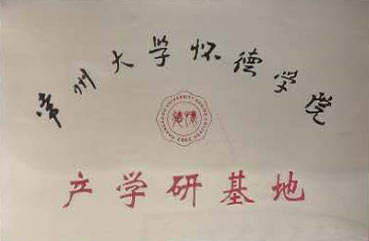 常州大学怀德学院
产学研基地